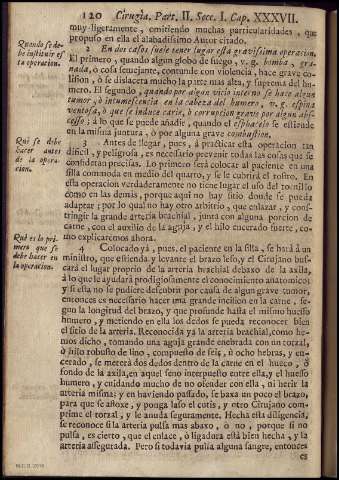 120 Cirugìa. Part. II. Secc. I. Cap. XXXVII.
muy-ligeramente, omitiendo muchas particularidades, que
propuso en ella el alabadissimo Autor citado.
Quando se debe instituir esta operacion.
2 En dos casos suele tener lugar esta gravissima operacion.
El primero, quando algun globo de fuego, v. g. bomba, granada,
ò cosa semejante, contunde con violencia, hace grave colision,
ò se dislacera mucho la parte mas alta, y suprema del humero.
El segundo, quando por algun vicio interno se hace algun
tumor, ò intumescencia en la cabeza del humero, v. g. espina
ventosa, ò que se induce caries, ò corrupcion grave por algun abscesso;
à lo que se puede añadir, quando el esphacelo se estiende
en la misma juntura, ò por alguna grave combustion.
Què se debe hacer antes de la operacion.
3 Antes de llegar, pues, à practicar esta operacion tan
dificil, y peligrosa, es necesario prevenir todas las cosas que se
consideran precisas. Lo primero serà colocar al paciente en una
silla commoda en medio del quarto, y se le cubrirà el rostro. En
esta operacion verdaderamente no tiene lugar el uso del tornillo
como en las demàs, porque aqui no hay sitio donde se pueda
adaptar; por lo qual no hay otro arbitrio, que enlazar, y constringir
la grande arteria brachial, junta con alguna porcion de
carne, con el auxilio de la aguja, y el hilo encerado fuerte, como
explicarèmos ahora.
Què es lo primero que se debe hacer en la operacion.
4 Colocado yà, pues, el paciente en la silla, se harà à un
ministro, que estienda, y levante el brazo leso, y el Cirujano buscarà
el lugar proprio de la arteria brachial debaxo de la axila,
à lo que le ayudarà prodigiosamente el conocimiento anatomico;
y si esta no se pudiere descubrir por causa de algun grave tumor,
entonces es necesario hacer una grande incision en la carne, segun
la longitud del brazo, y que profunde hasta el mismo huesso
humero, y metiendo en ella los dedos se pueda reconocer bien
el sitio de la arteria. Reconocida yà la arteria brachial, como hemos
dicho, tomando una aguja grande enebrada con un torzal,
ò hilo robusto de lino, compuesto de seis, ù ocho hebras, y encerado,
se meterà dos dedos dentro de la carne en el hueco, ò
fondo de la axila, en aquel seno interpuesto entre ella, y el huesso
humero, y cuidando mucho de no ofender con ella, ni herir la
arteria misma; y en haviendo passado, se baxa un poco el brazo,
para que se afloxe, y ponga laso el cutis, y otro Cirujano comprime
el torzal, y le anuda seguramente. Hecha esta diligencia,
se reconoce si la arteria pulsa mas abaxo, ò no, porque si no
pulsa, es cierto, que el enlace, ò ligadura està bien hecha, y la
arteria assegurada. Pero si todavia pulsa alguna sangre, entonces
es